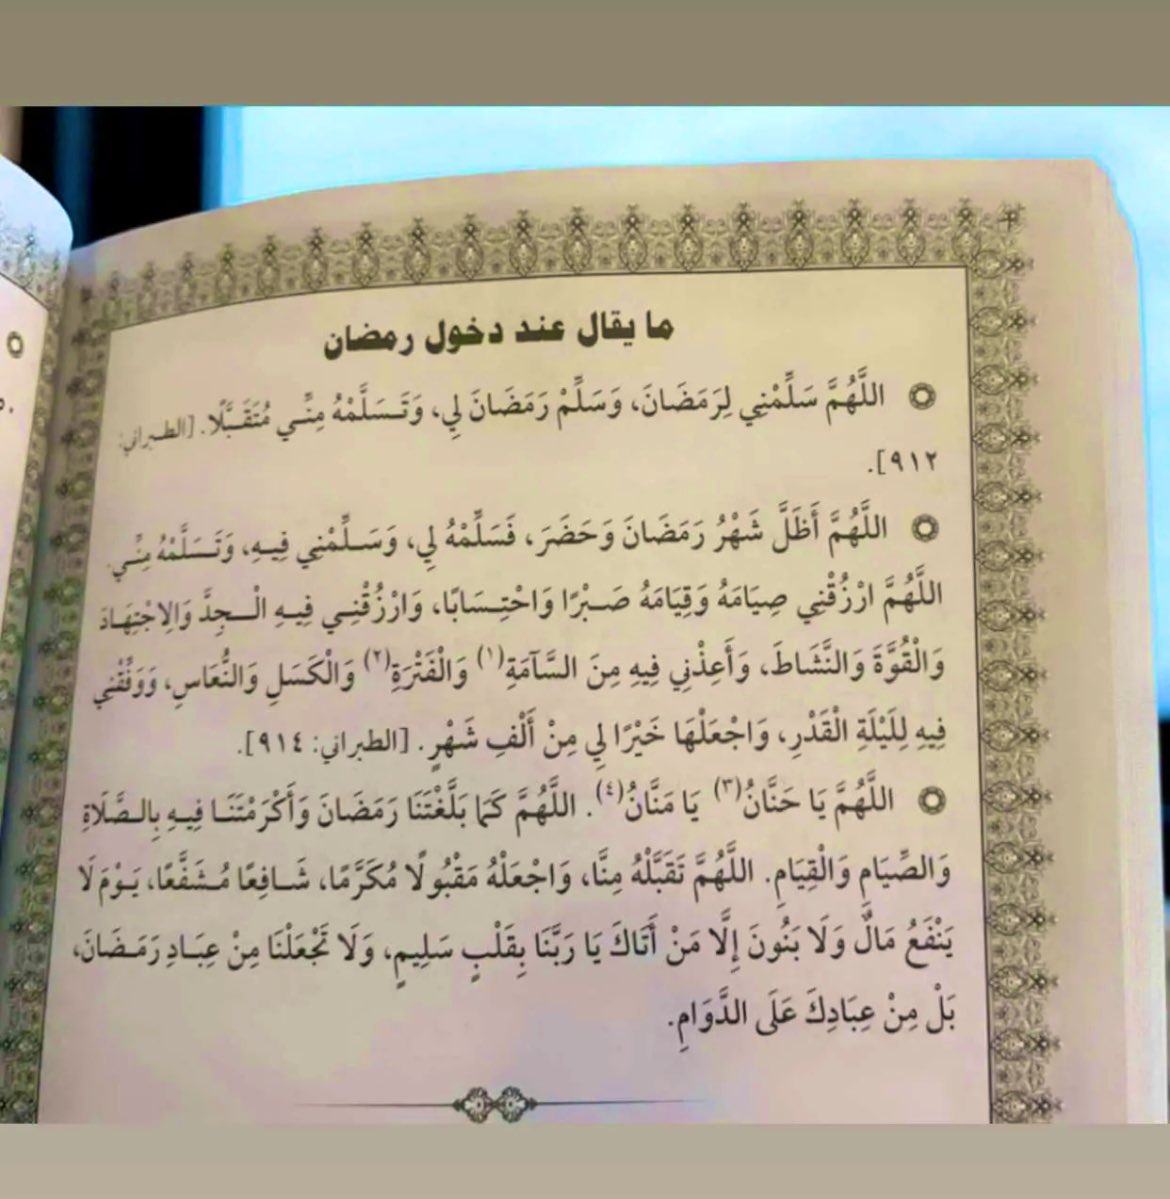 ما يقال عند دخول رمضان
اللَّهُمَّ سَلِّمْنِي لِرَمَضَانَ، وَسَلِّمْ رَمَضَانَ لِي، وَتَسَلَّمْهُ مِنِّي مُتَقَبَّلًا. [الطبراني:
٩١٢].
اللَّهُمَّ أَظَلَّ شَهْرُ رَمَضَانَ وَحَضَرَ، فَسَلِّمْهُ لِي، وَسَلِّمْنِي فِيهِ، وَتَسَلَّمْهُ مِنِّي.
اللَّهُمَّ ارْزُقْنِي صِيَامَهُ وَقِيَامَهُ صَبْرًا وَاحْتِسَابًا، وَارْزُقْنِي فِيهِ الْجِدَّ وَالِاجْتِهَادَ
وَالْقُوَّةَ وَالنَّشَاطَ، وَأَعِذْنِي فِيهِ مِنَ السَّآمَةِ(١) وَالْفَتْرَةِ(٢) وَالْكَسَلِ وَالنُّعَاسِ، وَوَفِّقْنِي
فِيهِ لِلَيْلَةِ الْقَدْرِ، وَاجْعَلْهَا خَيْرًا لِي مِنْ أَلْفِ شَهْرٍ. [الطبراني: ٩١٤].
اللَّهُمَّ يَا حَنَّانُ(٣) يَا مَنَّانُ(٤). اللَّهُمَّ كَمَا بَلَّغْتَنَا رَمَضَانَ وَأَكْرَمْتَنَا فِيهِ بِالصَّلَاةِ
وَالصِّيَامِ وَالْقِيَامِ. اللَّهُمَّ تَقَبَّلْهُ مِنَّا، وَاجْعَلْهُ مَقْبُولًا مُكَرَّمًا، شَافِعًا مُشَفَّعًا، يَوْمَ لَا
يَنْفَعُ مَالٌ وَلَا بَنُونَ إِلَّا مَنْ أَتَاكَ يَا رَبَّنَا بِقَلْبٍ سَلِيمٍ، وَلَا تَجْعَلْنَا مِنْ عِبَادِ رَمَضَانَ،
بَلْ مِنْ عِبَادِكَ عَلَى الدَّوَامِ.